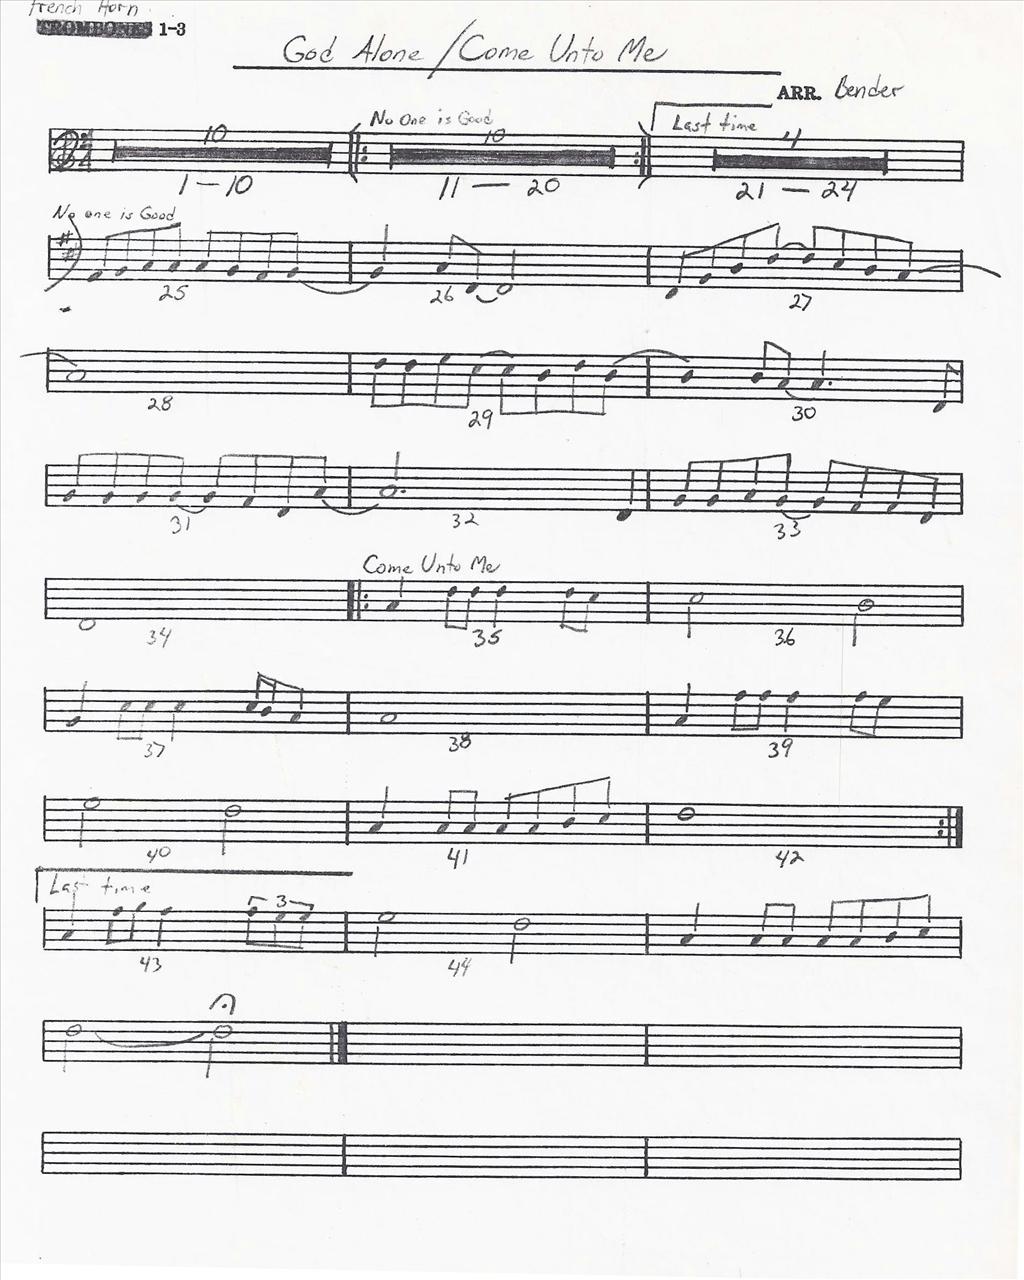 French Horn
TROMBONES 1-3
God Alone / Come Unto Me
ARR. Bender
10 No One is Good 10 Last time 4
1-10 11 - 20 21 - 24
No one is Good
25 26 27
28 29 30
31 32 33
Come Unto Me
34 35 36
37 38 39
40 41 42
Last time
3
43 44